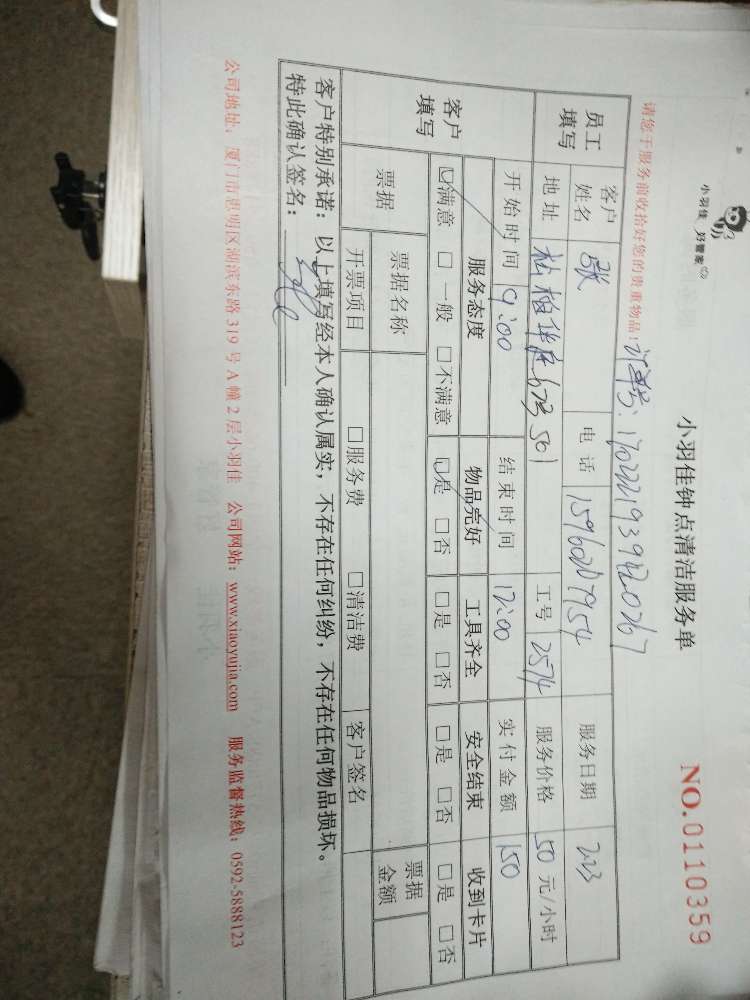 小羽佳 好管家
小羽佳钟点清洁服务单
NO.0110359
请您于服务前收拾好您的贵重物品!
员工填写 客户姓名 张 电话 服务日期 2.23
地址 松柏 501 工号 2574 服务价格 50 元/小时
开始时间 9:00 结束时间 12:00 实付金额 150
客户填写 服务态度 物品完好 工具齐全 安全结束 收到卡片
☑满意 □一般 □不满意 ☑是 □否 □是 □否 □是 □否 □是 □否
票据 票据名称 票据金额
开票项目 □服务费 □清洁费 客户签名
客户特别承诺:以上填写经本人确认属实,不存在任何纠纷,不存在任何物品损坏。
特此确认签名:
公司地址:厦门市思明区湖滨东路 319 号 A 幢 2 层小羽佳 公司网站:www.xiaoyujia.com 服务监督热线:0592-5888123